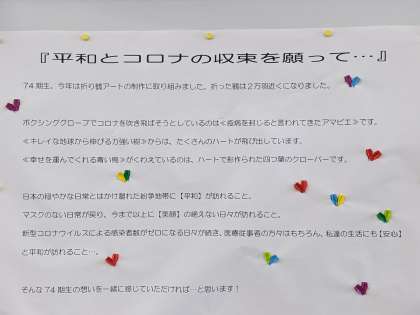 『平和とコロナの収束を願って…』
74期生、今年は折り鶴アートの制作に取り組みました。折った鶴は2万羽近くになりました。
ボクシンググローブでコロナを吹き飛ばそうとしているのは≪疫病を封じると言われてきたアマビエ≫です。
≪キレイな地球から伸びる力強い樹≫からは、たくさんのハートが飛び出しています。
≪幸せを運んでくれる青い鳥≫がくわえているのは、ハートで形作られた四つ葉のクローバーです。
日本の穏やかな日常とはかけ離れた紛争地帯に【平和】が訪れること。
マスクのない日常が戻り、今まで以上に【笑顔】の絶えない日々が訪れること。
新型コロナウイルスによる感染者数がゼロになる日々が続き、医療従事者の方々はもちろん、私達の生活にも【安心】
と平和が訪れること…。
そんな74期生の想いを一緒に感じていただければ…と思います！